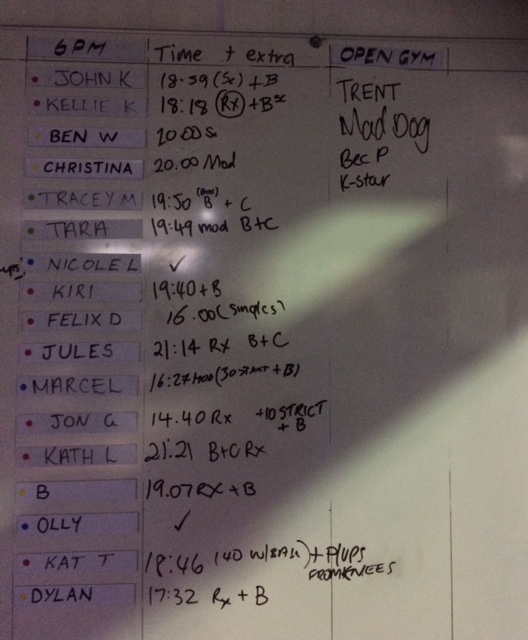 6PM Time + extra OPEN GYM
JOHN K 18:59 (Sc) + B TRENT
KELLIE K 18:18 Rx + B sc Mad Dog
BEN W 20.00 Sc Bec P
CHRISTINA 20.00 Mod K-star
TRACEY M 19:50 B + C
TARA 19:49 mod B+C
NICOLE L ✓
KIRI 19:40 + B
FELIX D 16.00 (singles)
JULES 21:14 Rx B+C
MARCEL 16:27 + B)
JON G 14.40 Rx +10 STRICT
+ B
KATH L 21.21 B+C Rx
B 19.07 RX + B
OLLY ✓
KAT T 18:46 (40 ) + P/UPS
FROM KNEES
DYLAN 17:32 Rx + B